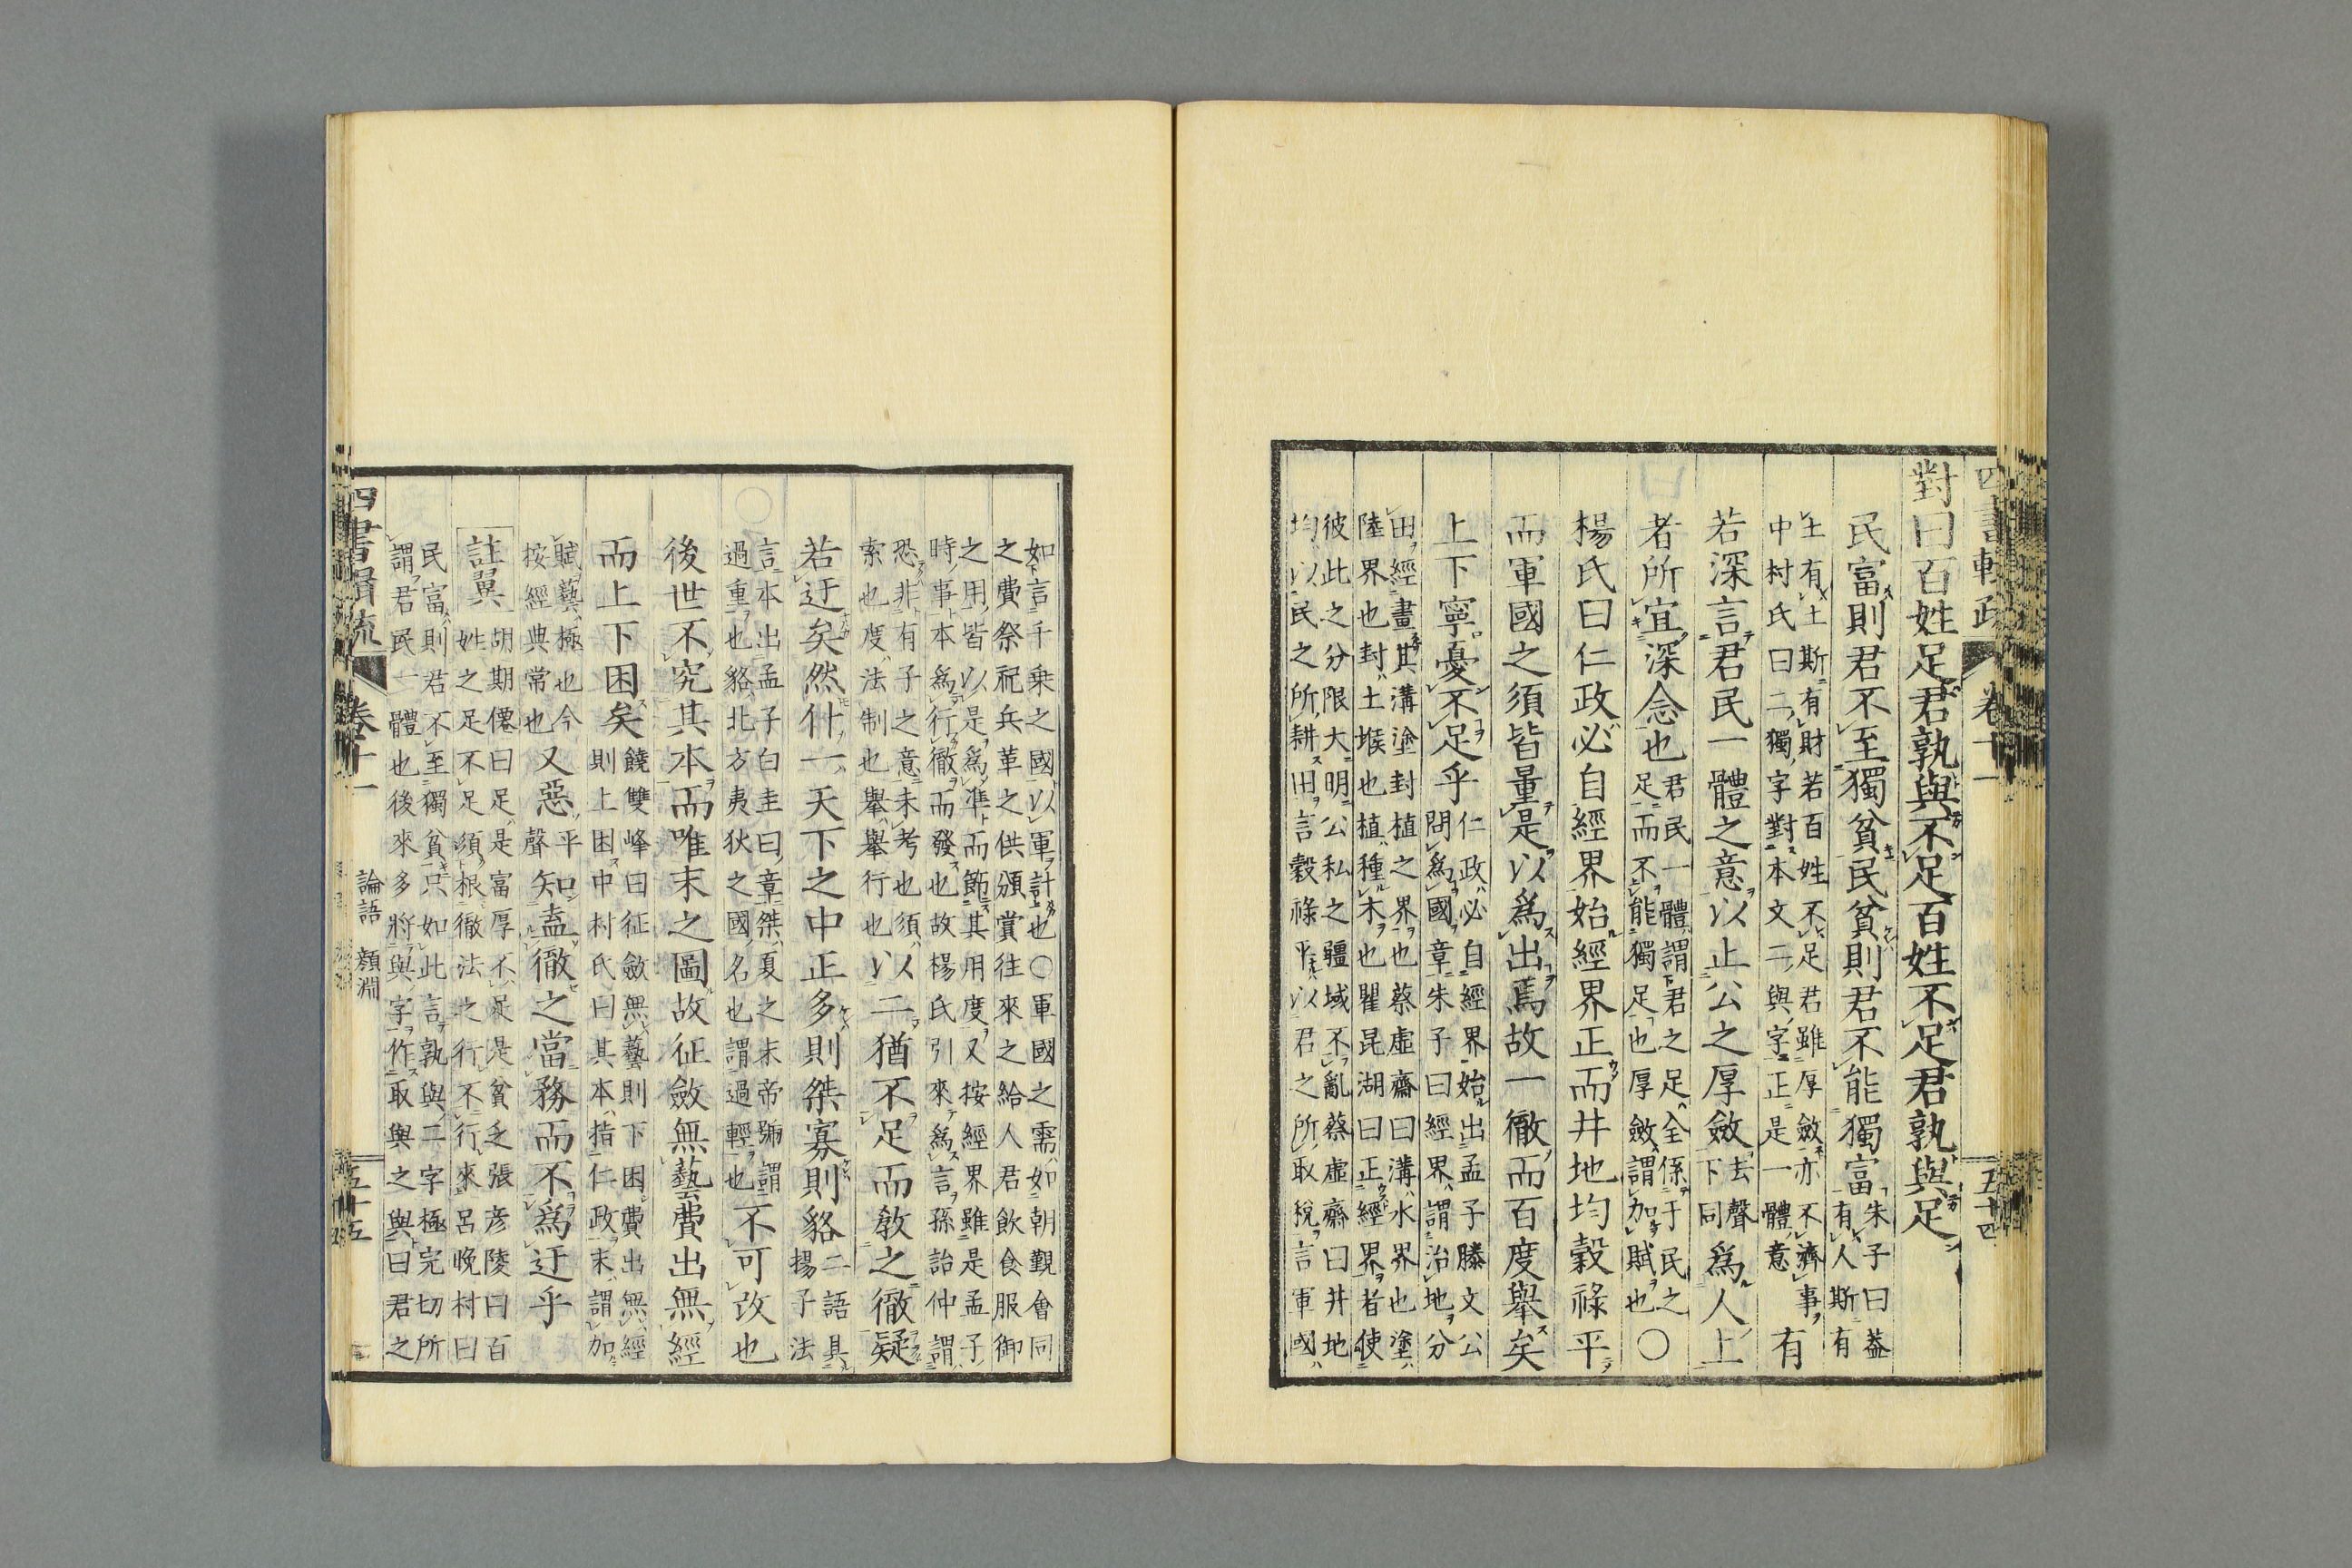 對曰百姓足君孰與不足百姓不足君孰與足
民富則君不至獨貧民貧則君不能獨富
朱子曰葢
有人斯有
土有土斯有財若百姓不足君雖厚斂亦不濟事
中村氏曰二獨字對本文二與字正是一體意
有
若深言君民一體之意以止公之厚斂
去聲
下同
爲人上
者所宜深念也
君民一體謂君之足全係于民之
足而不能獨足也厚斂謂加賦也
〇
楊氏曰仁政必自經界始經界正而井地均穀祿平
而軍國之須皆量是以爲出焉故一徹而百度舉矣
上下寧憂不足乎
仁政必自經界始出孟子滕文公
問爲國章朱子曰經界謂治地分
田經畫其溝塗封植之界也蔡虛齋曰溝水界也塗
陸界也封土堠也植種木也瞿昆湖曰正經界者使
彼此之分限大明公私之疆域不亂蔡虛齋曰井地
均以民之所耕田言穀祿平以君之所取稅言軍國
如言千乘之國以軍計也〇軍國之需如朝覲會同
之費祭祀兵革之供頒賞往來之給人君飲食服御
之用皆以是爲準而節其用度又按經界雖是孟子
時事本爲行徹而發也故楊氏引來爲言孫詒仲謂
恐非有子之意未考也須以
索也度法制也舉舉行也
以二猶不足而敎之徹疑
若迂矣然什一天下之中正多則桀寡則貉
二語具
揚子法
言本出孟子白圭曰章桀夏之末帝號謂
過重也貉北方夷狄之國名也謂過輕也
不可改也
後世不究其本而唯末之圖故征斂無藝費出無經
而上下困矣
饒雙峰曰征斂無藝則下困費出無經
則上困中村氏曰其本指仁政末謂加
賦藝極也今
按經典常也
又惡
平
聲
知盍徹之當務而不爲迂乎
註翼
胡期僊曰足是富厚不足是貧乏張彦陵曰百
姓之足不足須根徹法之行不行來呂晚村曰
民富則君不至獨貧只如此言孰與二字極完切所
謂君民一體也後來多將與字作取與之與曰君之
四書輯疏
卷十一
論語
顏淵
五十五